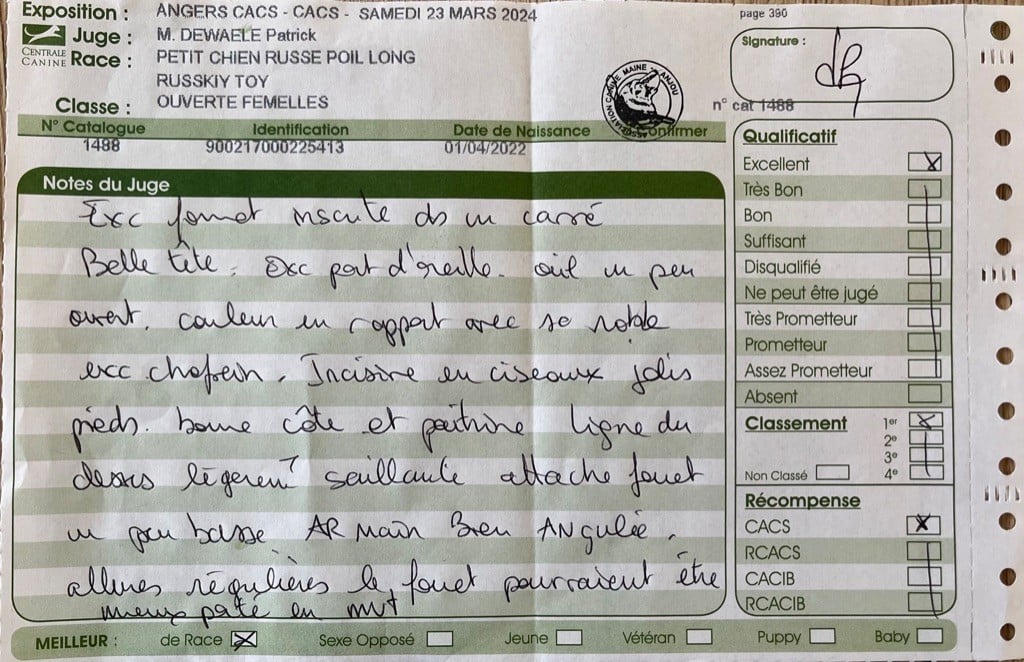 Exposition : ANGERS CACS - CACS - SAMEDI 23 MARS 2024
page 390
CENTRALE CANINE
Juge : M. DEWAELE Patrick
Race : PETIT CHIEN RUSSE POIL LONG
RUSSKIY TOY
Classe : OUVERTE FEMELLES
Signature :
ASSOCIATION CANINE MAINE ANJOU
n° cat 1488
N° Catalogue Identification Date de Naissance Confirmer
1488 900217000225413 01/04/2022
Notes du Juge
Exc format inscrite ds un carré
Belle tête. Exc port d'oreille. oeil un peu
ouvert. couleur en rapport avec sa robe
exc chanfrein. Incisive en ciseaux jolis
pieds. bonne côte et poitrine ligne du
dessus légèremT saillante attache fouet
un peu basse AR main Bien ANgulée.
allures régulières le fouet pourraient être
mieux porté en mvt
Qualificatif
Excellent X
Très Bon
Bon
Suffisant
Disqualifié
Ne peut être jugé
Très Prometteur
Prometteur
Assez Prometteur
Absent
Classement 1er X
2e
3e
Non Classé 4e
Récompense
CACS X
RCACS
CACIB
RCACIB
MEILLEUR : de Race X Sexe Opposé Jeune Vétéran Puppy Baby